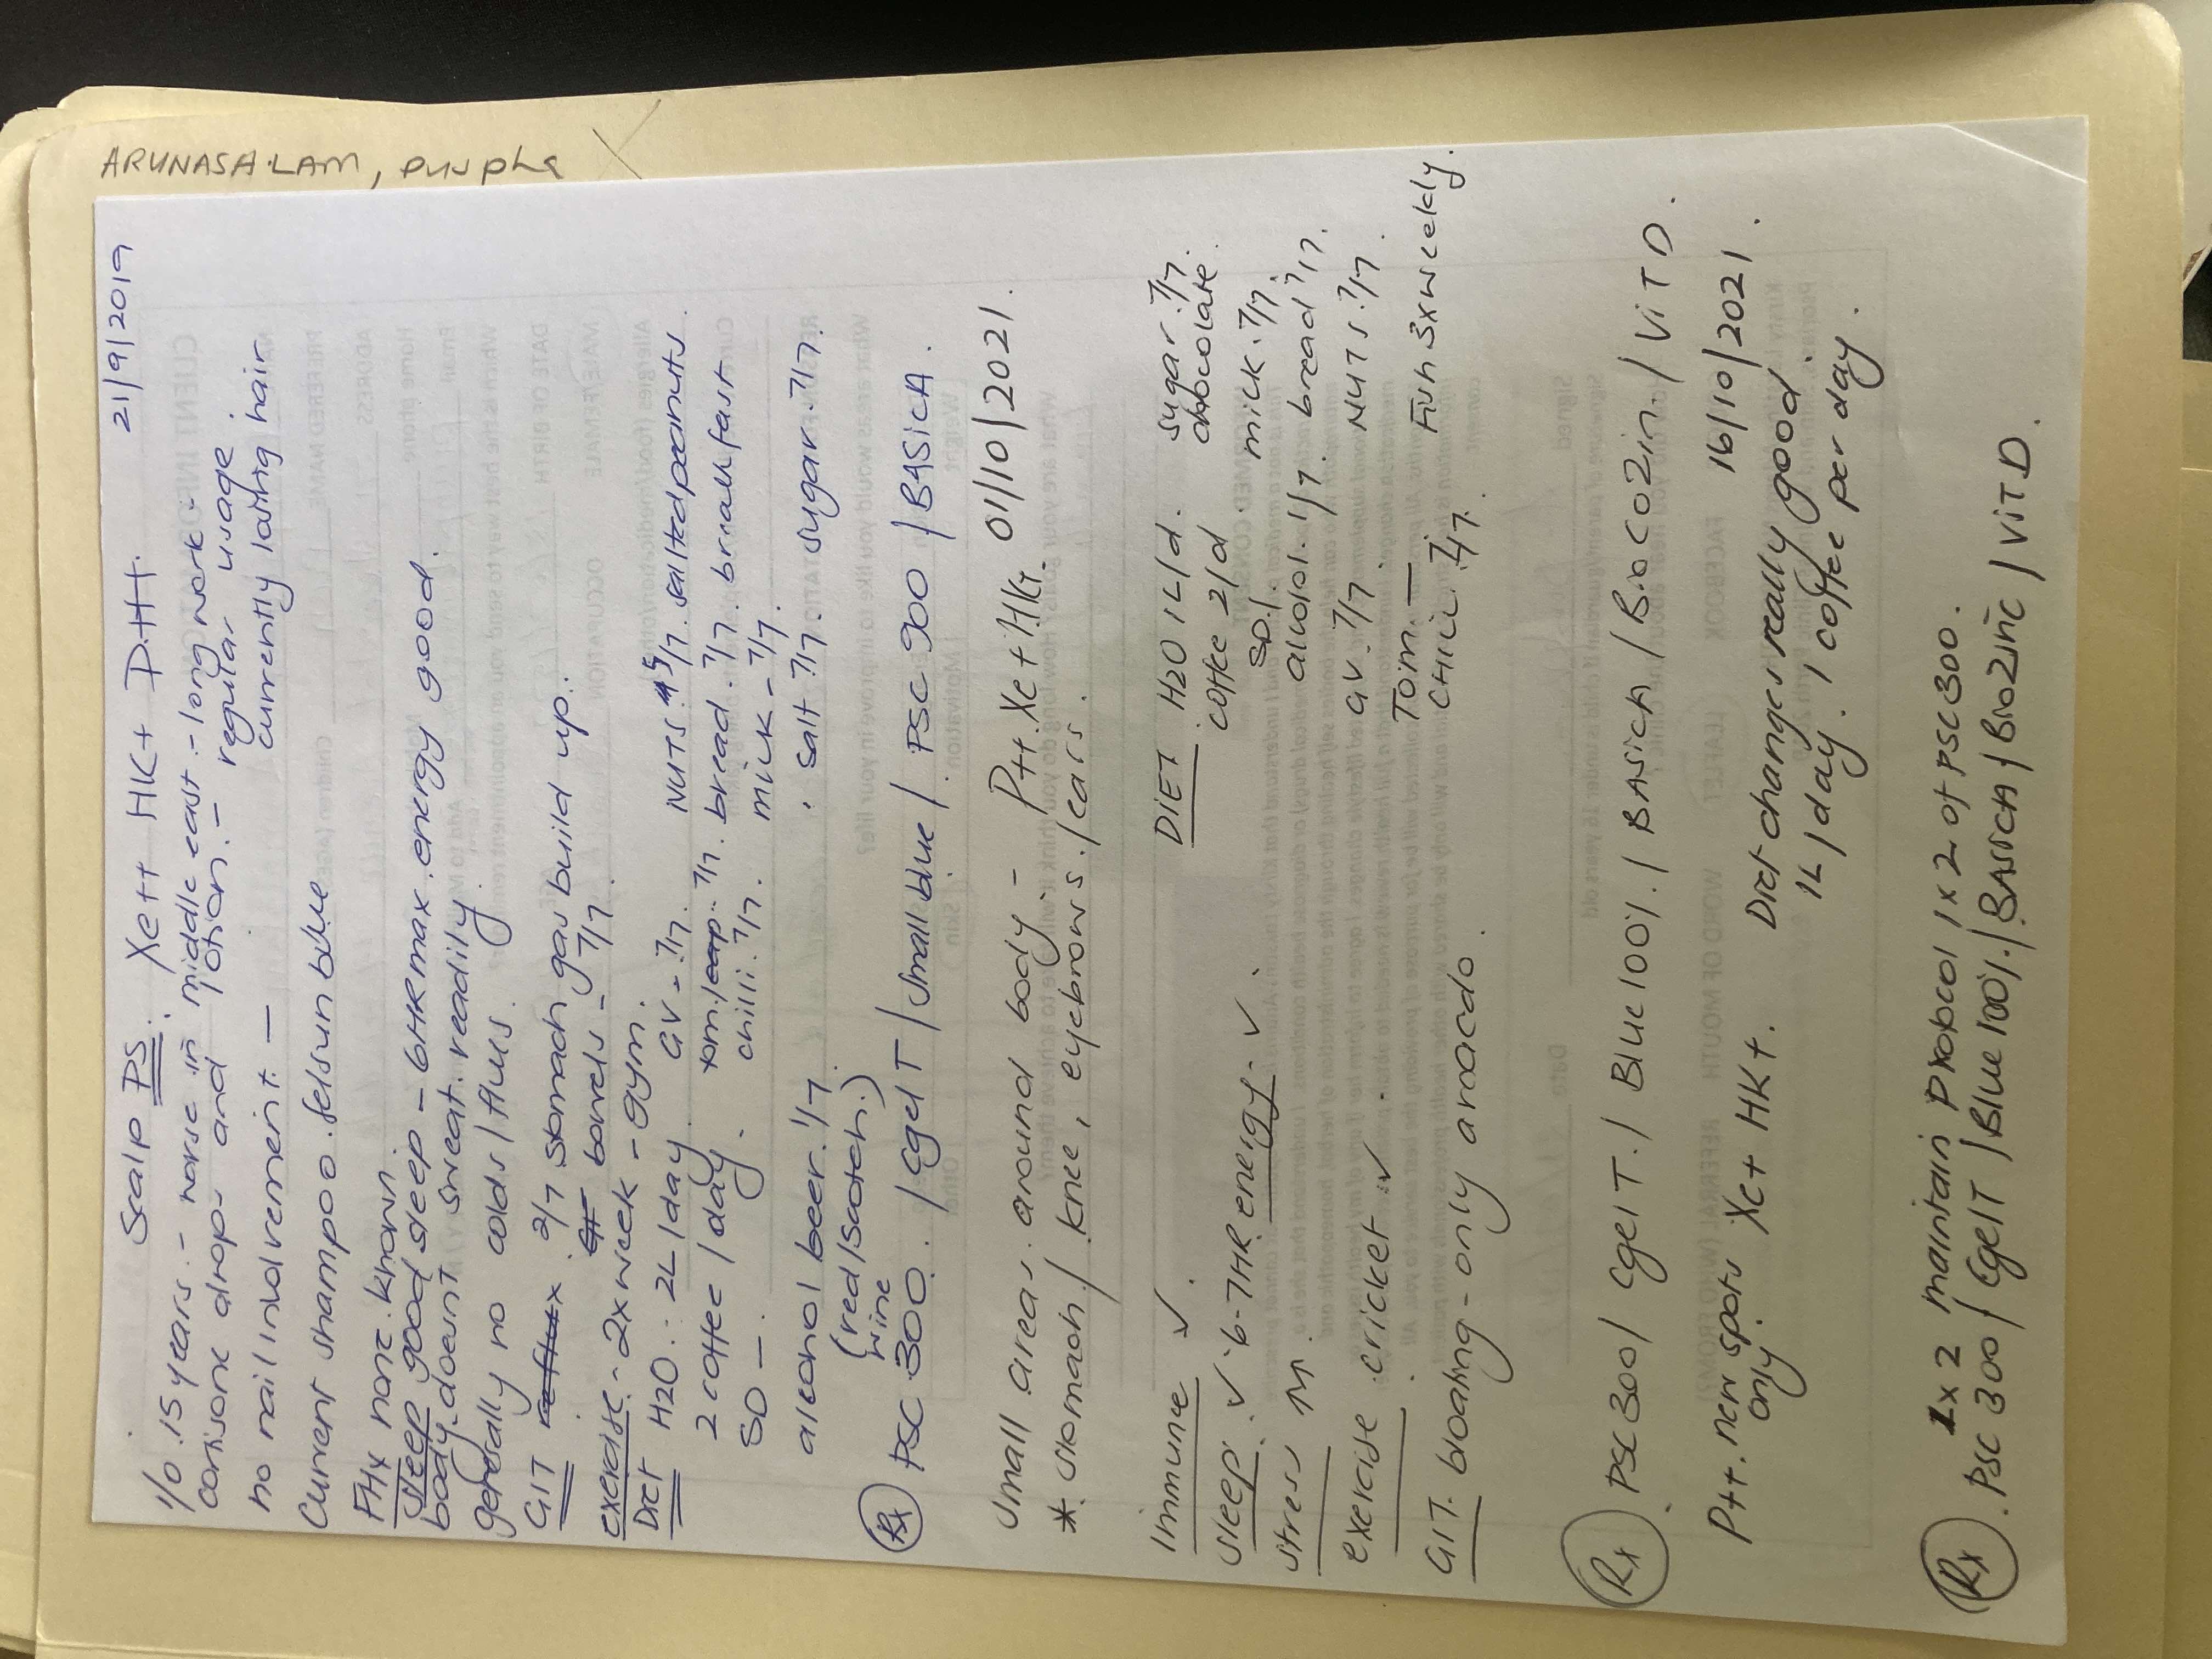 ARUNASALAM,
21/9/2019
Scalp PS. Xe++ HK+ P.++.
1/0 .15 years. - worse in middle east. - long work -
cortisone drops and lotion. - regular usage
currently lating hair
no nail involvement. -
Current shampoo. felsun blue
FHx none. known.
Sleep good sleep - 6HR max. energy good.
body. doesnt sweat. readily.
generally no colds / flus.
GIT 2/7 stomach gas build up.
bowels - 7/7.
exercise. - 2xweek - gym.
Diet H2O. : 2L /day. GV - 7/7. NUTS. 5/7. saltedpeanuts.
2 coffee /day. tom. 7/7. bread. 7/7. breakfast.
SD -. chilli. 7/7. milk - 7/7.
. salt 7/7. sugar. 7/7.
alcohol beer. 1/7.
(red/scotch.)
wine
Rx PSC 300. / CgelT / small blue / PSC 900 / BASICA.
P++. Xe + HK+. 01/10/2021.
Small areas. around body. -
*. stomach. / knee, eyebrows. / ears.
Immune ✓.
DIET H2O 1L/d. sugar. 7/7.
Sleep. ✓. 6-7HR. energy. ✓. coffee 2/d chocolate.
stress M. SD 1. milk. 7/7.
exercise. cricket. ✓. alcohol. 1/7. bread 7/7.
GV. 7/7. NUTS. 7/7.
Tom. - Fish 3xweekly.
CHILLI. 7/7.
GIT. bloating - only avocado.
Rx. PSC 300 / CgelT. / Blue 100%. / BASICA / BioCO2in. / VIT D.
16/10/2021.
P++. new spots only Xe+ HK+. Diet changes really good.
1L /day. 1 coffee per day.
1x2 maintain protocol 1x2 of PSC300.
Rx. PSC 300 / CgelT / Blue 100%. / BASICA / Bio2inc / VIT D.